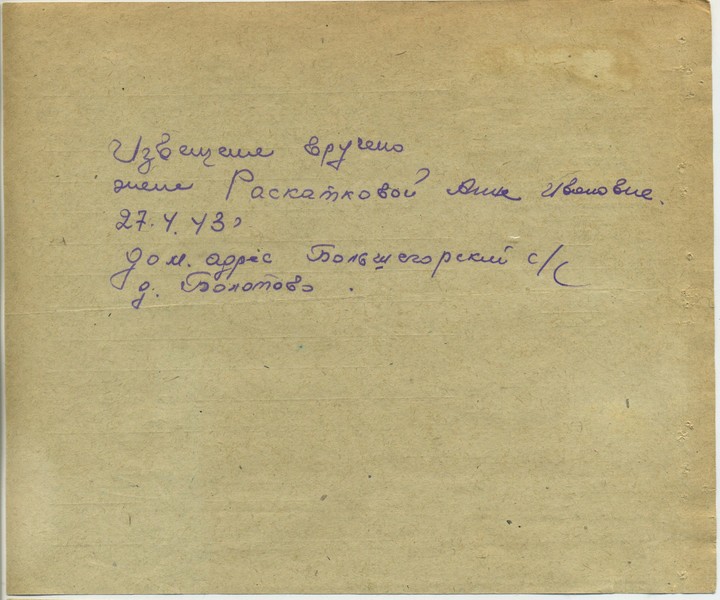 Извещение вручено
жене Раскатковой Анне Ивановне.
27.4.43г
Дом. адрес Большегорский с/с
д. Болотово.